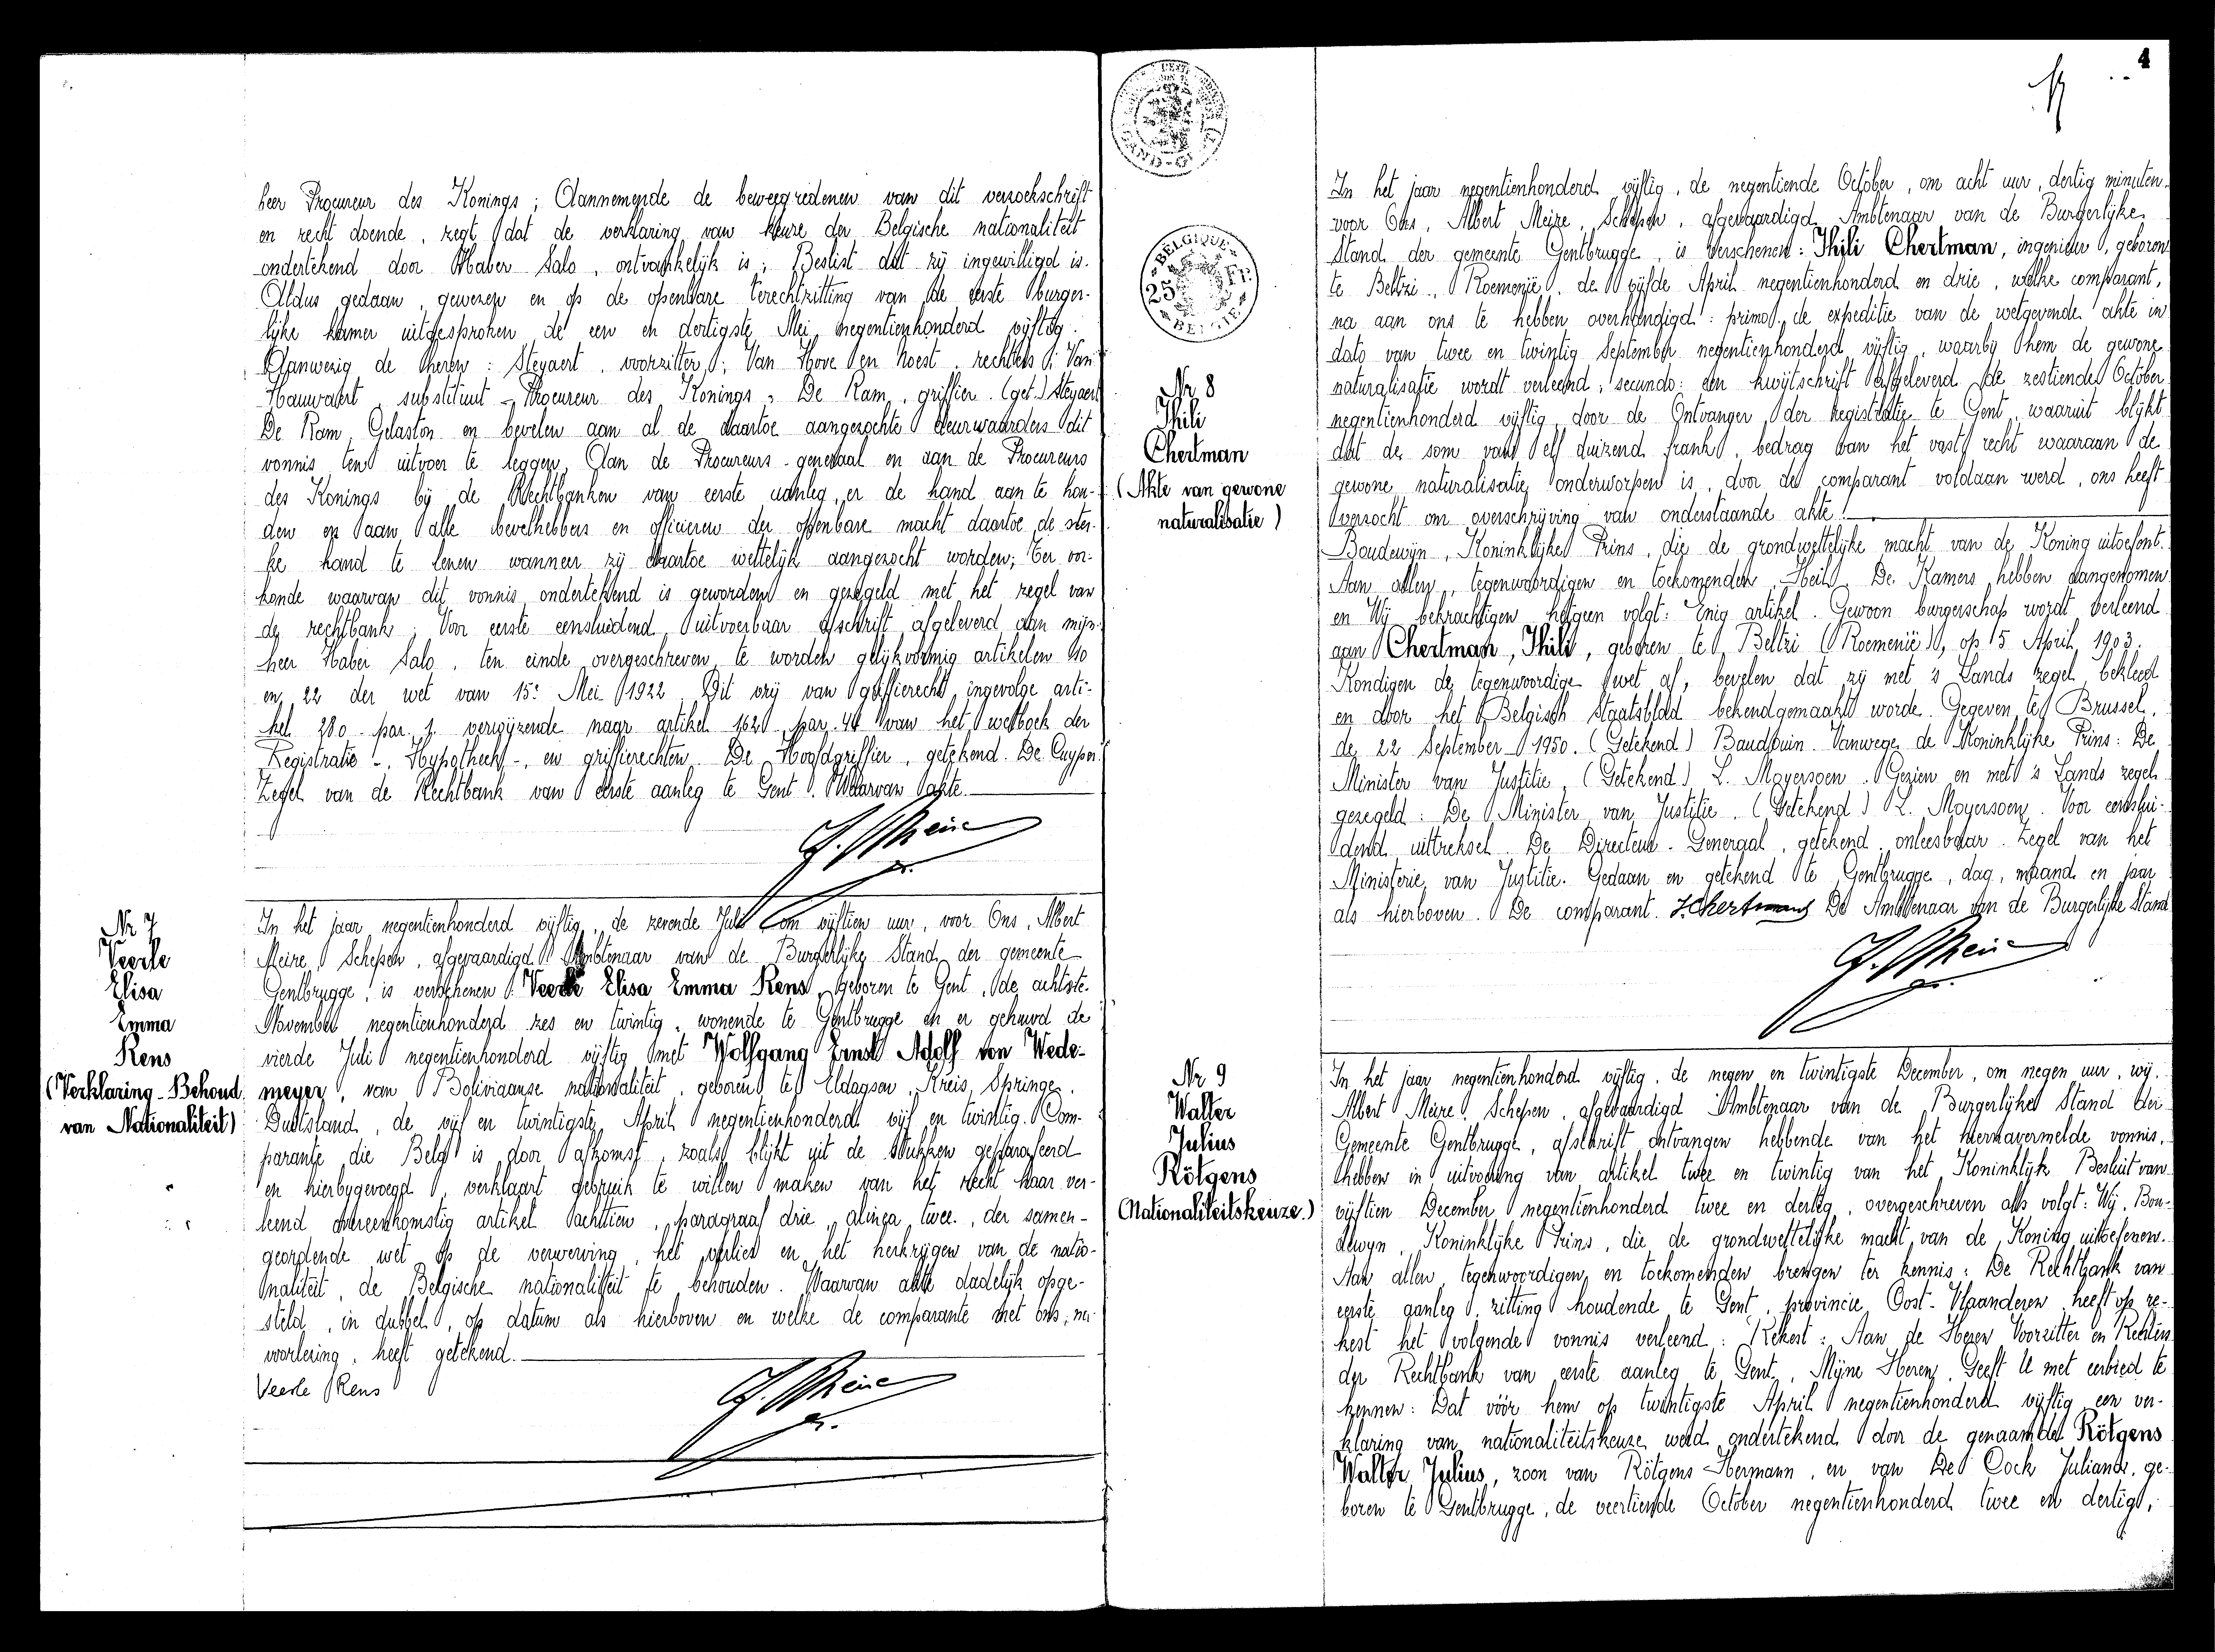 heer Procureur des Konings ; Aannemende de beweegredenen van dit verzoekschrift
en recht doende, zegt dat de verklaring van keuze der Belgische nationaliteit
ondertekend door Haber Salo, ontvankelijk is ; Beslist dat zij ingewilligd is.
Aldus gedaan, gewezen en op de openbare terechtzitting van de eerste burger-
lijke kamer uitgesproken de een en dertigste Mei negentienhonderd vijftig.
Aanwezig de heren : Steyaert, voorzitter ; Van Hove en Noest, rechters ; Van
Hauwaert, substituut - Procureur des Konings, De Ram, griffier. (get.) Steyaert
De Ram. Gelasten en bevelen aan al de daartoe aangezochte deurwaarders dit
vonnis ten uitvoer te leggen, Aan de Procureurs-generaal en aan de Procureurs
des Konings bij de Rechtbanken van eerste aanleg, er de hand aan te hou-
den en aan alle bevelhebbers en officieren der openbare macht daartoe de ster-
ke hand te lenen wanneer zij daartoe wettelijk aangezocht worden ; Ter oor-
konde waarvan dit vonnis ondertekend is geworden en gezegeld met het zegel van
de rechtbank ; Voor eerste eensluidend, uitvoerbaar afschrift afgeleverd aan mijn-
heer Haber Salo, ten einde overgeschreven te worden gelijkvormig artikelen 10
en 22 der wet van 15e Mei 1922. Dit vrij van griffierecht, ingevolge arti-
kel 280 - par. 1. verwijzende naar artikel 162 par. 44 van het wetboek der
Registratie -, Hypotheek -, en griffierechten. De Hoofdgriffier, getekend. De Cuyper.
Zegel van de Rechtbank van eerste aanleg te Gent. Waarvan akte.
Nr 7
Veerle
Elisa
Emma
Rens
(Verklaring - Behoud
van Nationaliteit)
In het jaar negentienhonderd vijftig, de zevende Juli om vijftien uur, voor Ons, Albert
Meire, Schepen, afgevaardigd Ambtenaar van de Burgerlijke Stand der gemeente
Gentbrugge, is verschenen : Veerle Elisa Emma Rens, geboren te Gent, de achtste
November negentienhonderd zes en twintig, wonende te Gentbrugge en er gehuwd de
vierde Juli negentienhonderd vijftig met Wolfgang Ernst Adolf von Wede-
meyer, van Boliviaanse nationaliteit, geboren te Eldagsen, Kreis Springe,
Duitsland, de vijf en twintigste April negentienhonderd vijf en twintig. Com-
parante die Belg is door afkomst, zoals blijkt uit de stukken geparafeerd
en hierbijgevoegd, verklaart gebruik te willen maken van het recht haar ver-
leend overeenkomstig artikel achttien, paragraaf drie, alinea twee, der samen-
geordende wet op de verwerving, het verlies en het herkrijgen van de natio-
naliteit, de Belgische nationaliteit te behouden. Waarvan akte dadelijk opge-
steld, in dubbel, op datum als hierboven en welke de comparante met ons, na
voorlezing, heeft getekend.
Veerle Rens
4
BELGIQUE
25
BELGIË
Nr 8
Thili
Chertman
(Akte van gewone
naturalisatie)
In het jaar negentienhonderd vijftig, de negentiende October, om acht uur, dertig minuten
voor Ons, Albert Meire, Schepen, afgevaardigd Ambtenaar van de Burgerlijke
Stand der gemeente Gentbrugge, is verschenen : Thili Chertman, ingenieur, geboren
te Beltzi, Roemenië, de vijfde April negentienhonderd en drie, welke comparant,
na aan ons te hebben overhandigd : primo, de expeditie van de wetgevende akte in
dato van twee en twintig September negentienhonderd vijftig, waarbij hem de gewone
naturalisatie wordt verleend ; secundo : een kwijtschrift afgeleverd de zestiende October
negentienhonderd vijftig door de Ontvanger der Registratie te Gent, waaruit blijkt
dat de som van elf duizend frank, bedrag van het vast recht waaraan de
gewone naturalisatie onderworpen is, door de comparant voldaan werd, ons heeft
verzocht om overschrijving van onderstaande akte :
Boudewijn, Koninklijke Prins, die de grondwettelijke macht van de Koning uitoefent.
Aan allen, tegenwoordigen en toekomenden, Heil. De Kamers hebben aangenomen
en Wij bekrachtigen hetgeen volgt : Enig artikel. Gewoon burgerschap wordt verleend
aan Chertman, Thili, geboren te Beltzi (Roemenië), op 5 April 1903.
Kondigen de tegenwoordige wet af, bevelen dat zij met 's Lands zegel bekleed
en door het Belgisch Staatsblad bekendgemaakt worde. Gegeven te Brussel,
de 22 September 1950. (Getekend) Baudouin. Vanwege de Koninklijke Prins : De
Minister van Justitie, (Getekend) L. Moyersoen. Gezien en met 's Lands zegel
gezegeld : De Minister van Justitie. (Getekend) L. Moyersoen. Voor eenslui-
dend uittreksel. De Directeur - Generaal, getekend, onleesbaar. Zegel van het
Ministerie van Justitie. Gedaan en getekend te Gentbrugge, dag, maand en jaar
als hierboven. De comparant. De Ambtenaar van de Burgerlijke Stand
Nr 9
Walter
Julius
Rötgens
(Nationaliteitskeuze.)
In het jaar negentienhonderd vijftig, de negen en twintigste December, om negen uur, wij,
Albert Meire, Schepen, afgevaardigd Ambtenaar van de Burgerlijke Stand der
Gemeente Gentbrugge, afschrift ontvangen hebbende van het hiernavermelde vonnis,
hebben in uitvoering van artikel twee en twintig van het Koninklijk Besluit van
vijftien December negentienhonderd twee en dertig, overgeschreven als volgt : Wij, Bou-
dewijn, Koninklijke Prins, die de grondwettelijke macht van de Koning uitoefenen.
Aan allen, tegenwoordigen en toekomenden brengen ter kennis : De Rechtbank van
eerste aanleg, zitting houdende te Gent, provincie Oost-Vlaanderen heeft op re-
kest het volgende vonnis verleend : Rekest : Aan de Heren Voorzitter en Rechters
der Rechtbank van eerste aanleg te Gent, Mijne Heren, Geeft U met eerbied te
kennen : Dat vóór hem op twintigste April negentienhonderd vijftig een ver-
klaring van nationaliteitskeuze werd ondertekend door de genaamde Rötgens
Walter Julius, zoon van Rötgens Hermann, en van De Cock Juliana, ge-
boren te Gentbrugge, de veertiende October negentienhonderd twee en dertig,